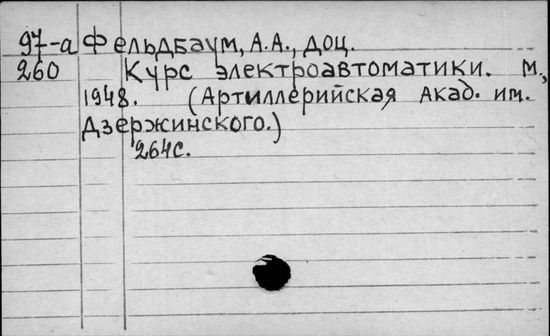 97-а Фельдбаум, А.А., доц.
260 Курс электроавтоматики. М.,
1948. (Артиллерийская Акад. им.
Дзержинского.)
264с.